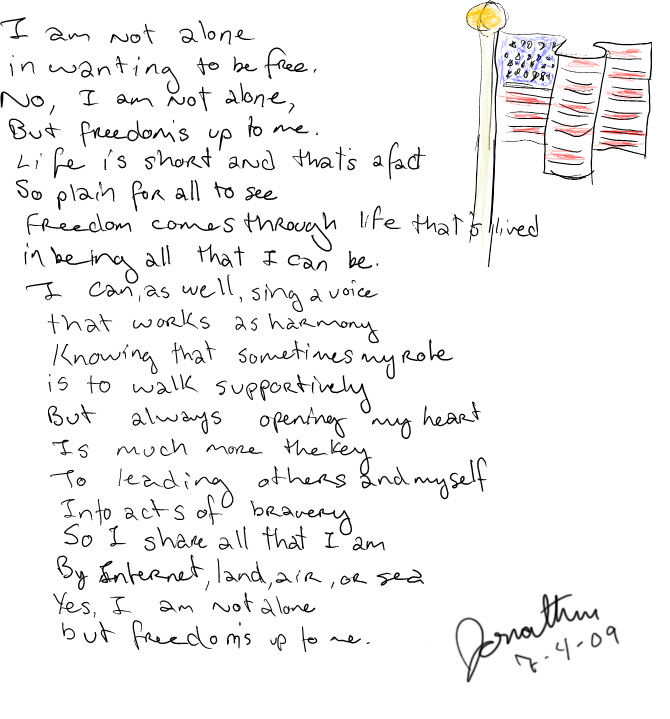 I am not alone
in wanting to be free.
No, I am not alone,
But freedom's up to me.
Life is short and that's a fact
So plain for all to see
Freedom comes through life that's lived
in being all that I can be.
I can, as well, sing a voice
that works as harmony
Knowing that sometimes my role
is to walk supportively
But always opening my heart
Is much more the key
To leading others and myself
Into acts of bravery
So I share all that I am
By Internet, land, air, or sea
Yes, I am not alone
but freedom's up to me.
Jonathan
7-4-09